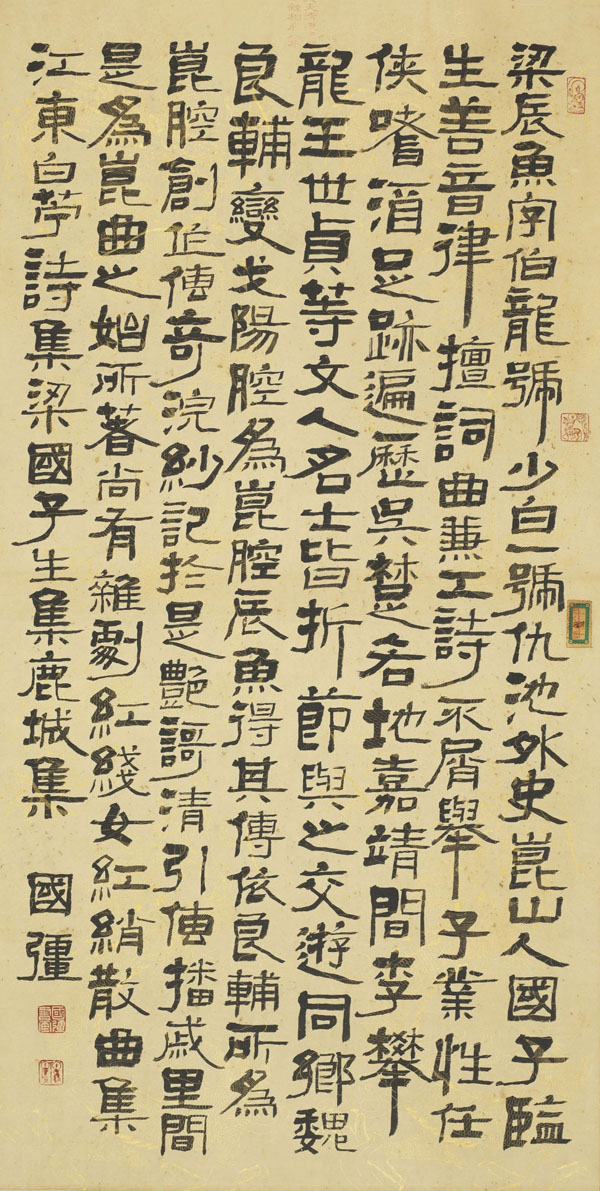 梁辰魚字伯龍號少白一號仇池外史崑山人國子監
生善音律擅詞曲兼工詩不屑舉子業性任
俠嗜酒足跡遍歷吳楚名地嘉靖間李攀
龍王世貞等文人名士皆折節與之交遊同鄉魏
良輔變弋陽腔為崑腔辰魚得其傳依良輔所為
崑腔創作傳奇浣紗記於是艷謌清引傳播戚里間
是為崑曲之始所著尚有雜劇紅綫女紅綃散曲集
江東白苧詩集梁國子生集鹿城集 國彊